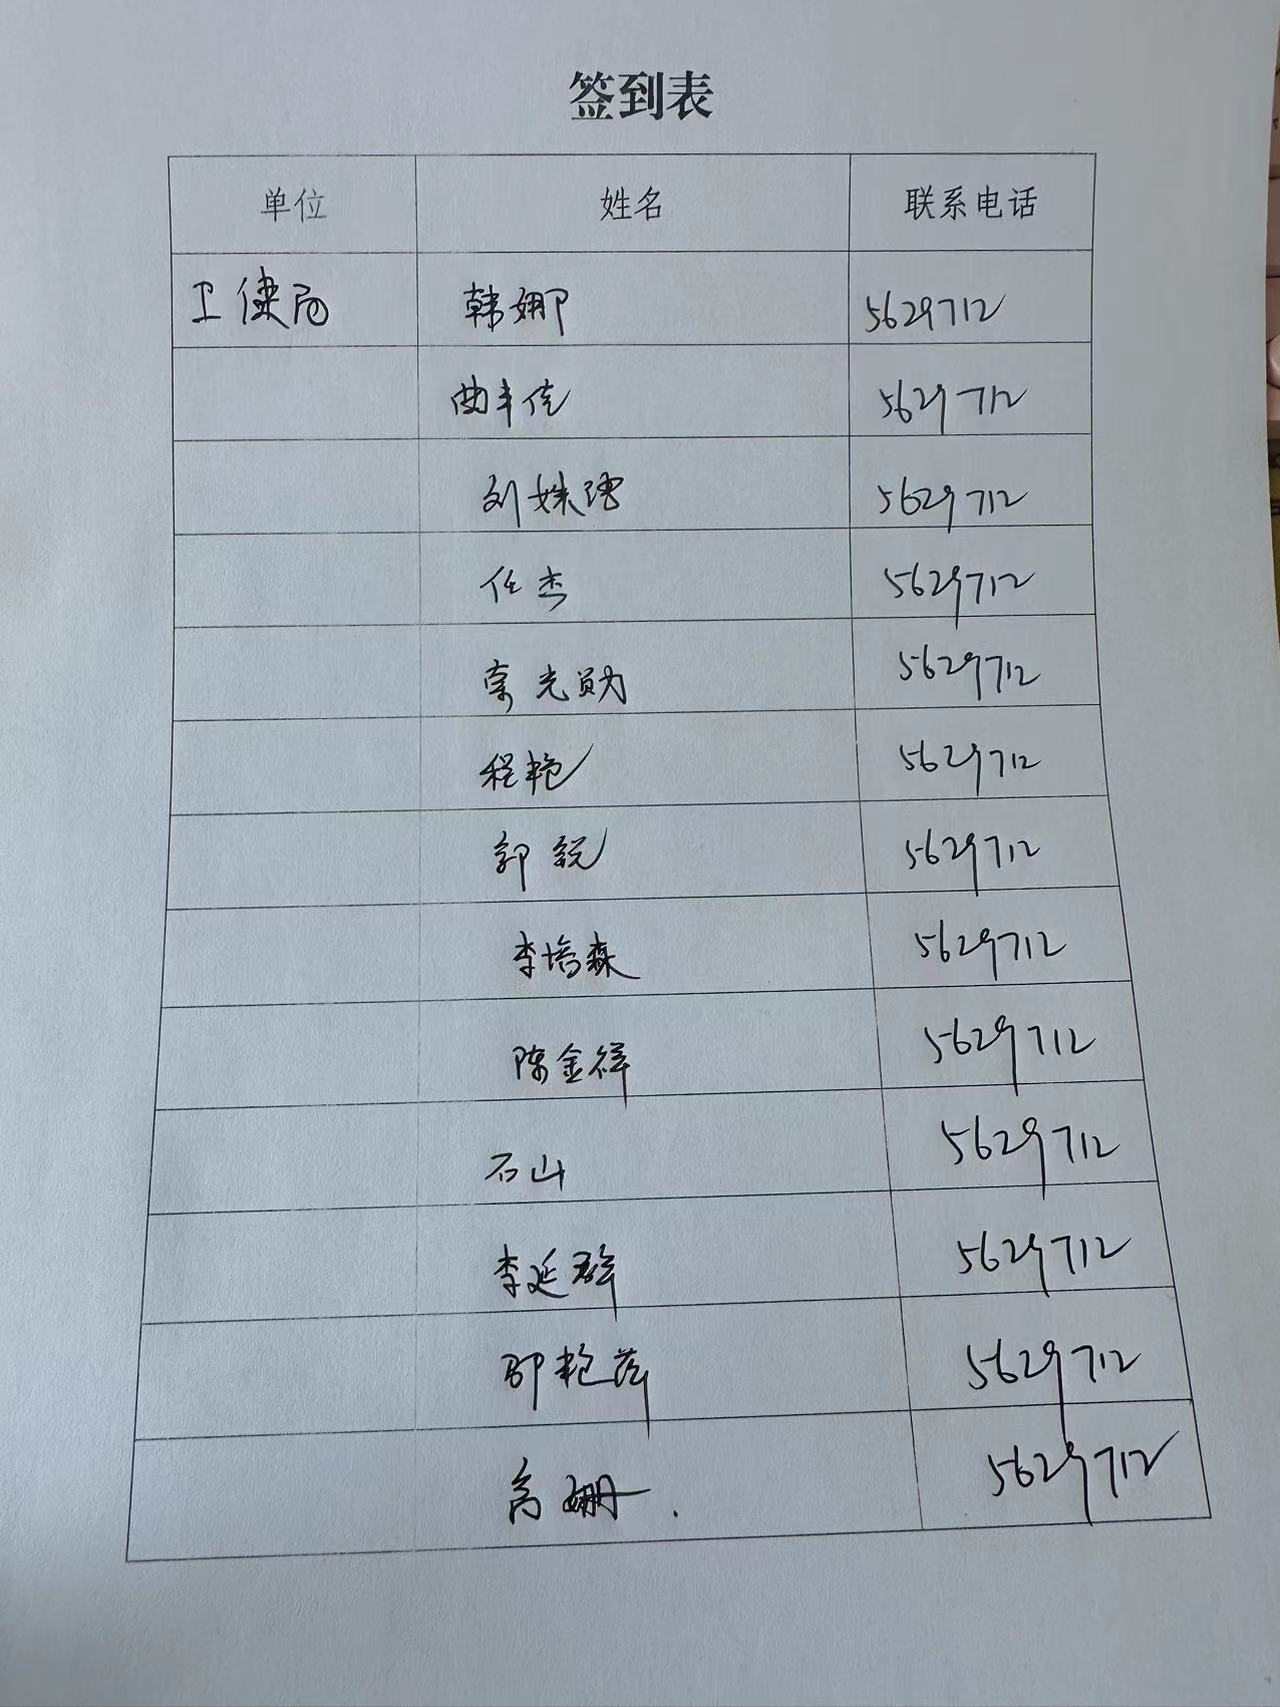 签到表
单位 姓名 联系电话
卫健局 韩娜 5629712
曲丰佳 5629712
刘姝 5629712
任杰 5629712
荣光勋 5629712
程艳 5629712
郭锐 5629712
李培森 5629712
陈金祥 5629712
石山 5629712
李延群 5629712
邵艳萍 5629712
高姗 5629712